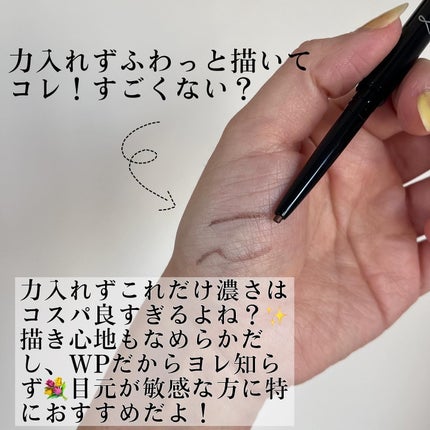 力入れずふわっと描いて
コレ！すごくない？
力入れずこれだけ濃さは
コスパ良すぎるよね？✨
描き心地もなめらかだ
し、WPだからヨレ知ら
ず💐目元が敏感な方に特
におすすめだよ！